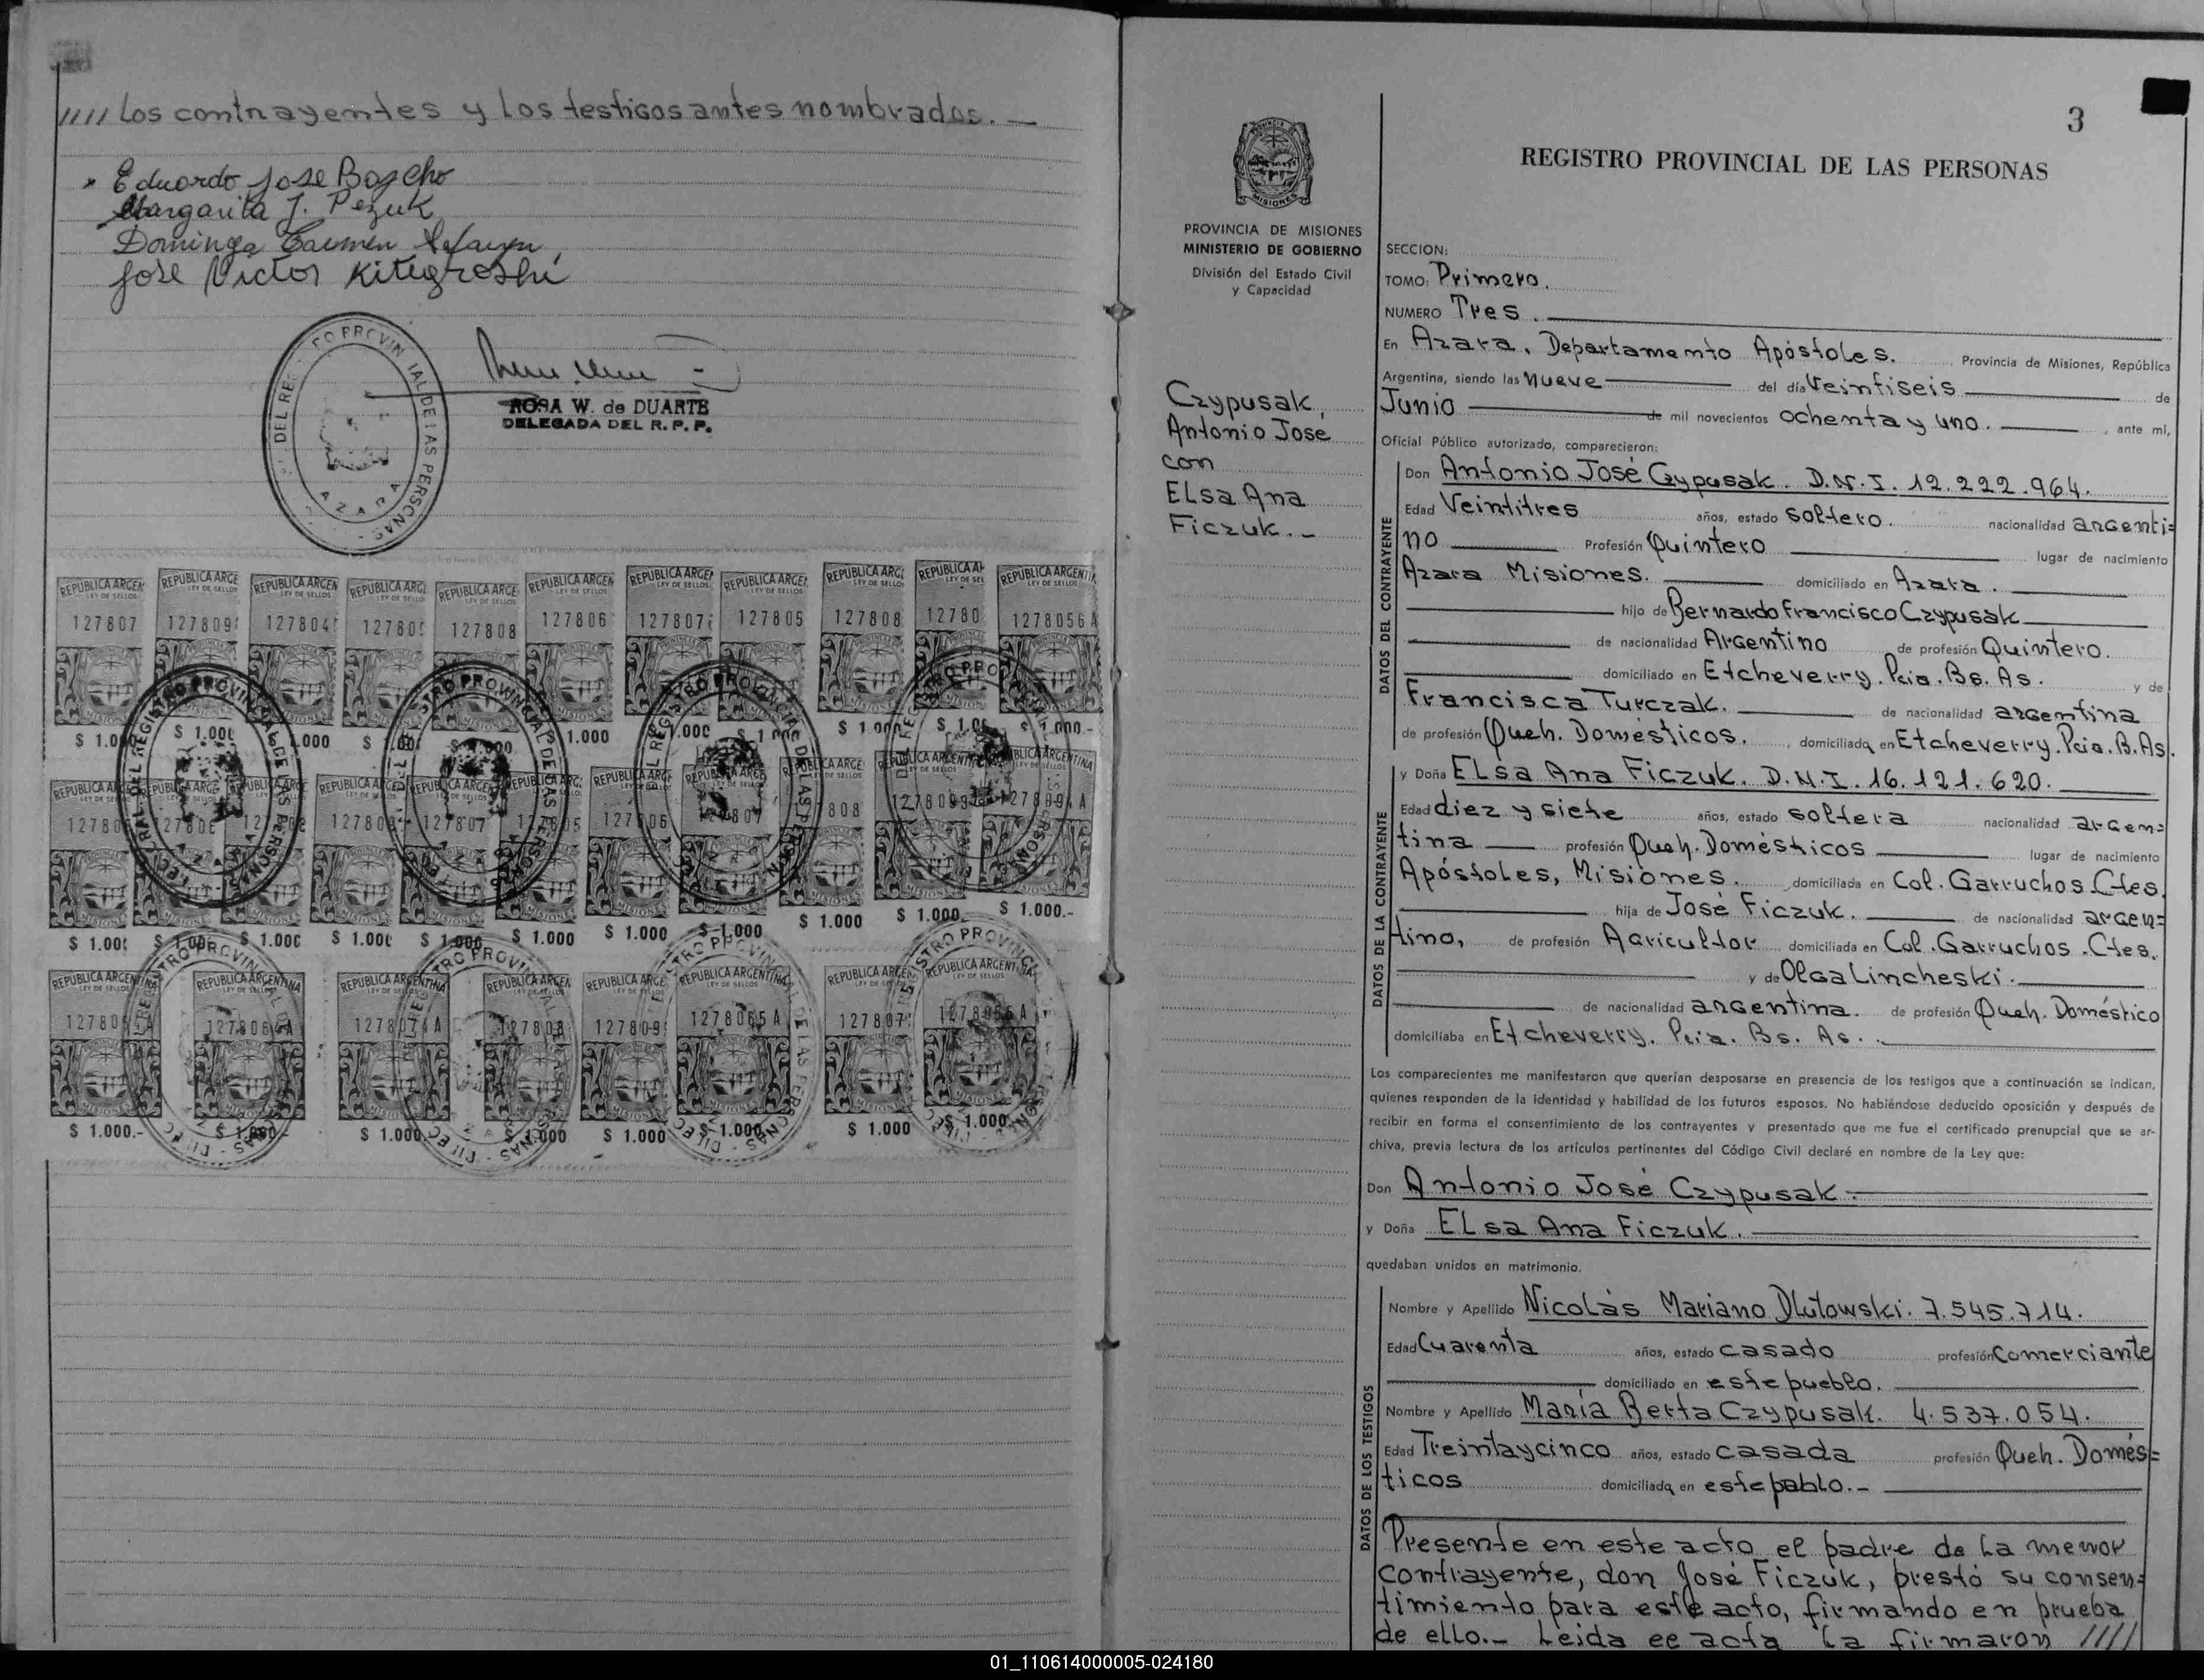 //// Los contrayentes y los testigos antes nombrados. —
Eduardo Jose Boscho
Margarita J. Pezuk
Dominga Carmen
Jose Victor
ROSA W. de DUARTE
DELEGADA DEL R. P. P.
AZARA
REPUBLICA ARGENTINA
LEY DE SELLOS
1278056 A
MISIONES
$ 1.000.-
1278064 A
1278065 A
3
REGISTRO PROVINCIAL DE LAS PERSONAS
PROVINCIA DE MISIONES
MINISTERIO DE GOBIERNO
División del Estado Civil
y Capacidad
Czypusak,
Antonio Jose
con
Elsa Ana
Ficzuk.-
SECCION:
TOMO: Primero.
NUMERO Tres.
En Azara, Departamento Apóstoles. Provincia de Misiones, República
Argentina, siendo las Nueve del día Veintiseis de
Junio de mil novecientos ochenta y uno. , ante mi,
Oficial Público autorizado, comparecieron:
DATOS DEL CONTRAYENTE
Don Antonio José Czypusak. D.N.I. 12.222.964.
Edad Veintitres años, estado soltero. nacionalidad argenti=
no Profesión Quintero lugar de nacimiento
Azara Misiones. domiciliado en Azara.
hijo de Bernardo Francisco Czypusak
de nacionalidad Argentino de profesión Quintero.
domiciliado en Etcheverry. Pcia. Bs. As. y de
Francisca Turczak. de nacionalidad argentina
de profesión Queh. Domésticos. , domiciliada en Etcheverry. Pcia. B. As.
DATOS DE LA CONTRAYENTE
y Doña Elsa Ana Ficzuk. D.N.I. 16.121.620.
Edad diez y siete años, estado soltera nacionalidad argen=
tina profesión Queh. Domésticos lugar de nacimiento
Apóstoles, Misiones. domiciliada en Col. Garruchos. Ctes.
hija de José Ficzuk. de nacionalidad argen=
tino, de profesión Agricultor domiciliada en Col. Garruchos. Ctes.
y de Olga Lincheski.
de nacionalidad argentina. de profesión Queh. Doméstico
domiciliaba en Etcheverry. Pcia. Bs. As.
Los comparecientes me manifestaron que querían desposarse en presencia de los testigos que a continuación se indican,
quienes responden de la identidad y habilidad de los futuros esposos. No habiéndose deducido oposición y después de
recibir en forma el consentimiento de los contrayentes y presentado que me fue el certificado prenupcial que se ar-
chiva, previa lectura de los artículos pertinentes del Código Civil declaré en nombre de la Ley que:
Don Antonio José Czypusak.
y Doña Elsa Ana Ficzuk.
quedaban unidos en matrimonio.
DATOS DE LOS TESTIGOS
Nombre y Apellido Nicolás Mariano Dlutowski. 7.545.714.
Edad Cuarenta años, estado casado profesión Comerciante
domiciliado en este pueblo.
Nombre y Apellido María Berta Czypusak. 4.537.054.
Edad Treintaycinco años, estado casada profesión Queh. Domés=
ticos domiciliada en este pablo.-
Presente en este acto el padre de la menor
contrayente, don José Ficzuk, prestó su consen=
timiento para este acto, firmando en prueba
de ello.- Leida ee acta la firmaron ////
01_110614000005-024180